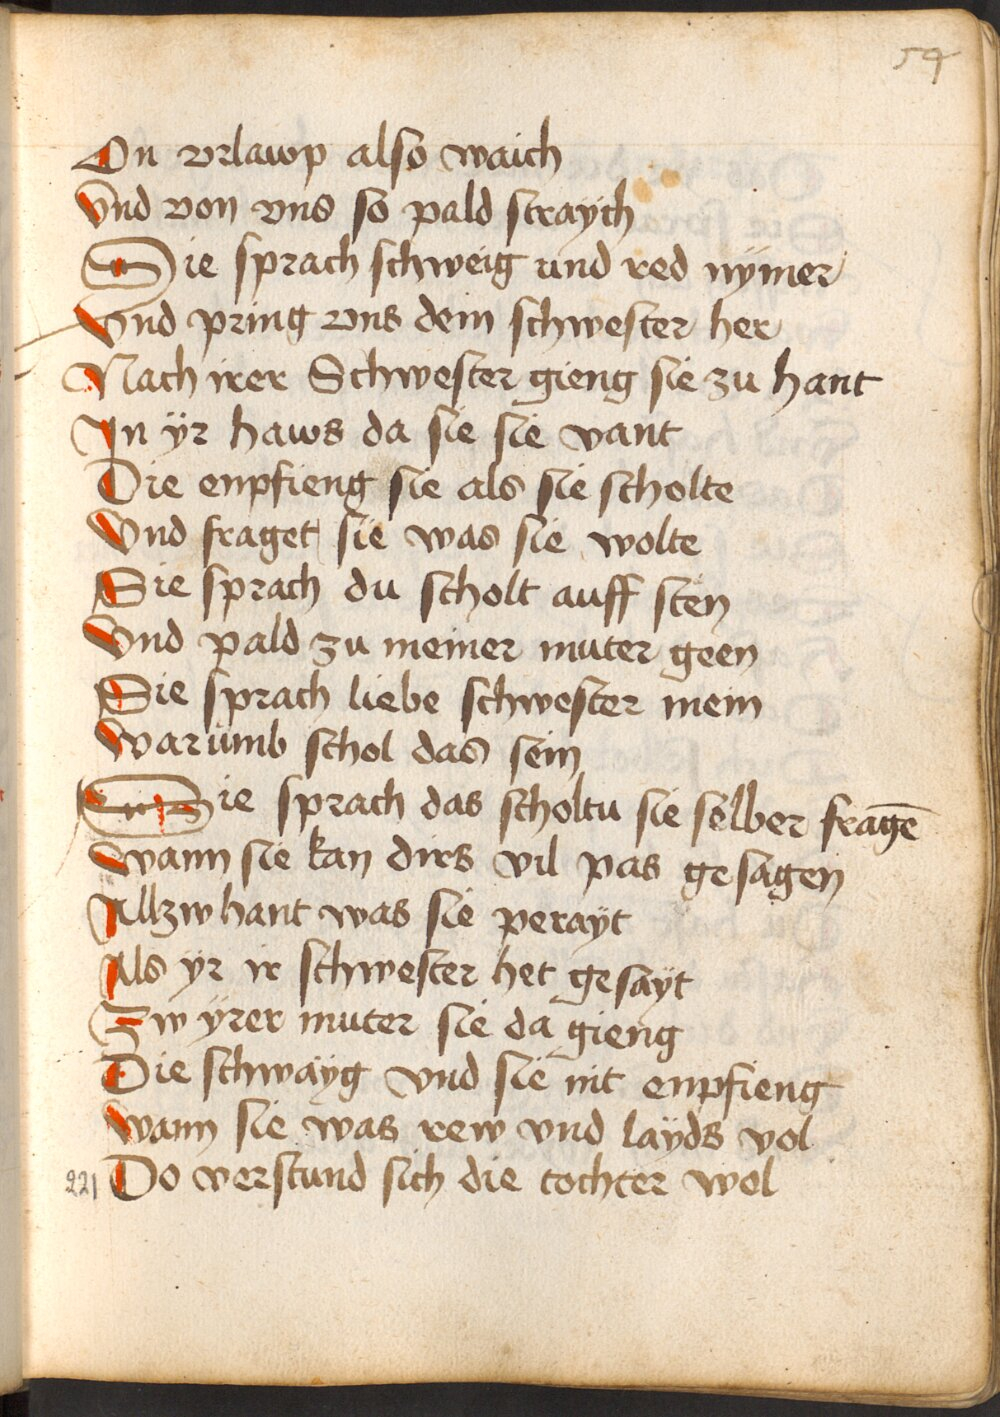 54
On vrlawp also waich
Vnd von vns so pald straych
Sie sprach schweig und red nymer
Vnd pring vns dein schwester her
Nach irer Schwester gieng sie zu hant
In ÿr haws da sie sie vant
Die enpfieng sie als sie scholte
Vnd fraget sie was sie wolte
Sie sprach du scholt auff sten
Vnd pald zu meiner muter geen
Sie sprach liebe schwester mein
Warumb schol das sein
Sie sprach das scholtu sie selber fragē
Wann sie kan dirs vil pas gesagen
Allzw hant was sie perayt
Als ÿr ir schwester het gesayt
Zw ÿrer muter sie da gieng
Die schwayg vnd sie nit enpfieng
Wann sie was rew vnd layds vol
221 Do verstund sich die tochter wol